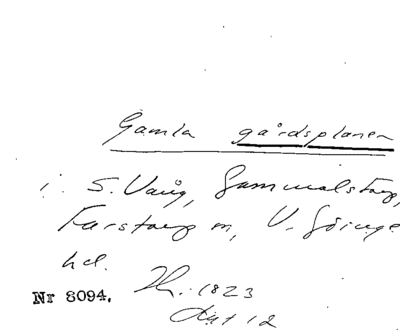 Gamla gårdsplanen
i S. Vång, Gammalstorp,
Farstorp m, V. Göinge
hd.
Nr 8094.
1823
12